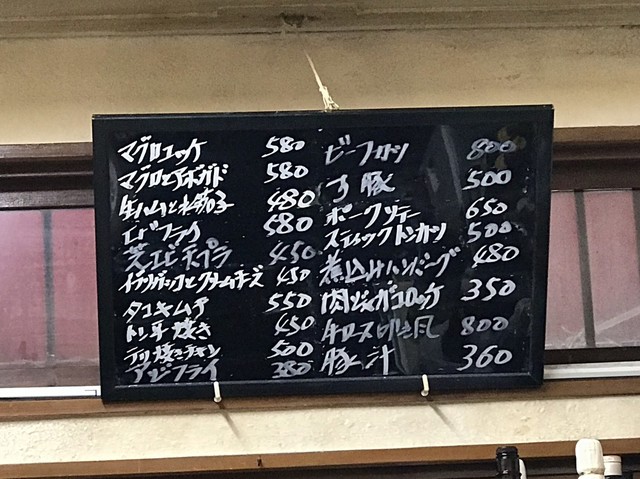 マグロユッケ 580
マグロとアボガド 580
生ハムと水茄子 480
エビフライ 580
芝エビ天プラ 450
イブリガッコとクリームチーズ 450
タコキムチ 550
トン平焼き 450
テリ焼きチキン 500
アジフライ 380
ビーフカツ 800
す豚 500
ポークソテー 650
スティックトンカツ 500
煮込みハンバーグ 480
肉ジャガコロッケ 350
牛ロース 風 800
豚汁 360